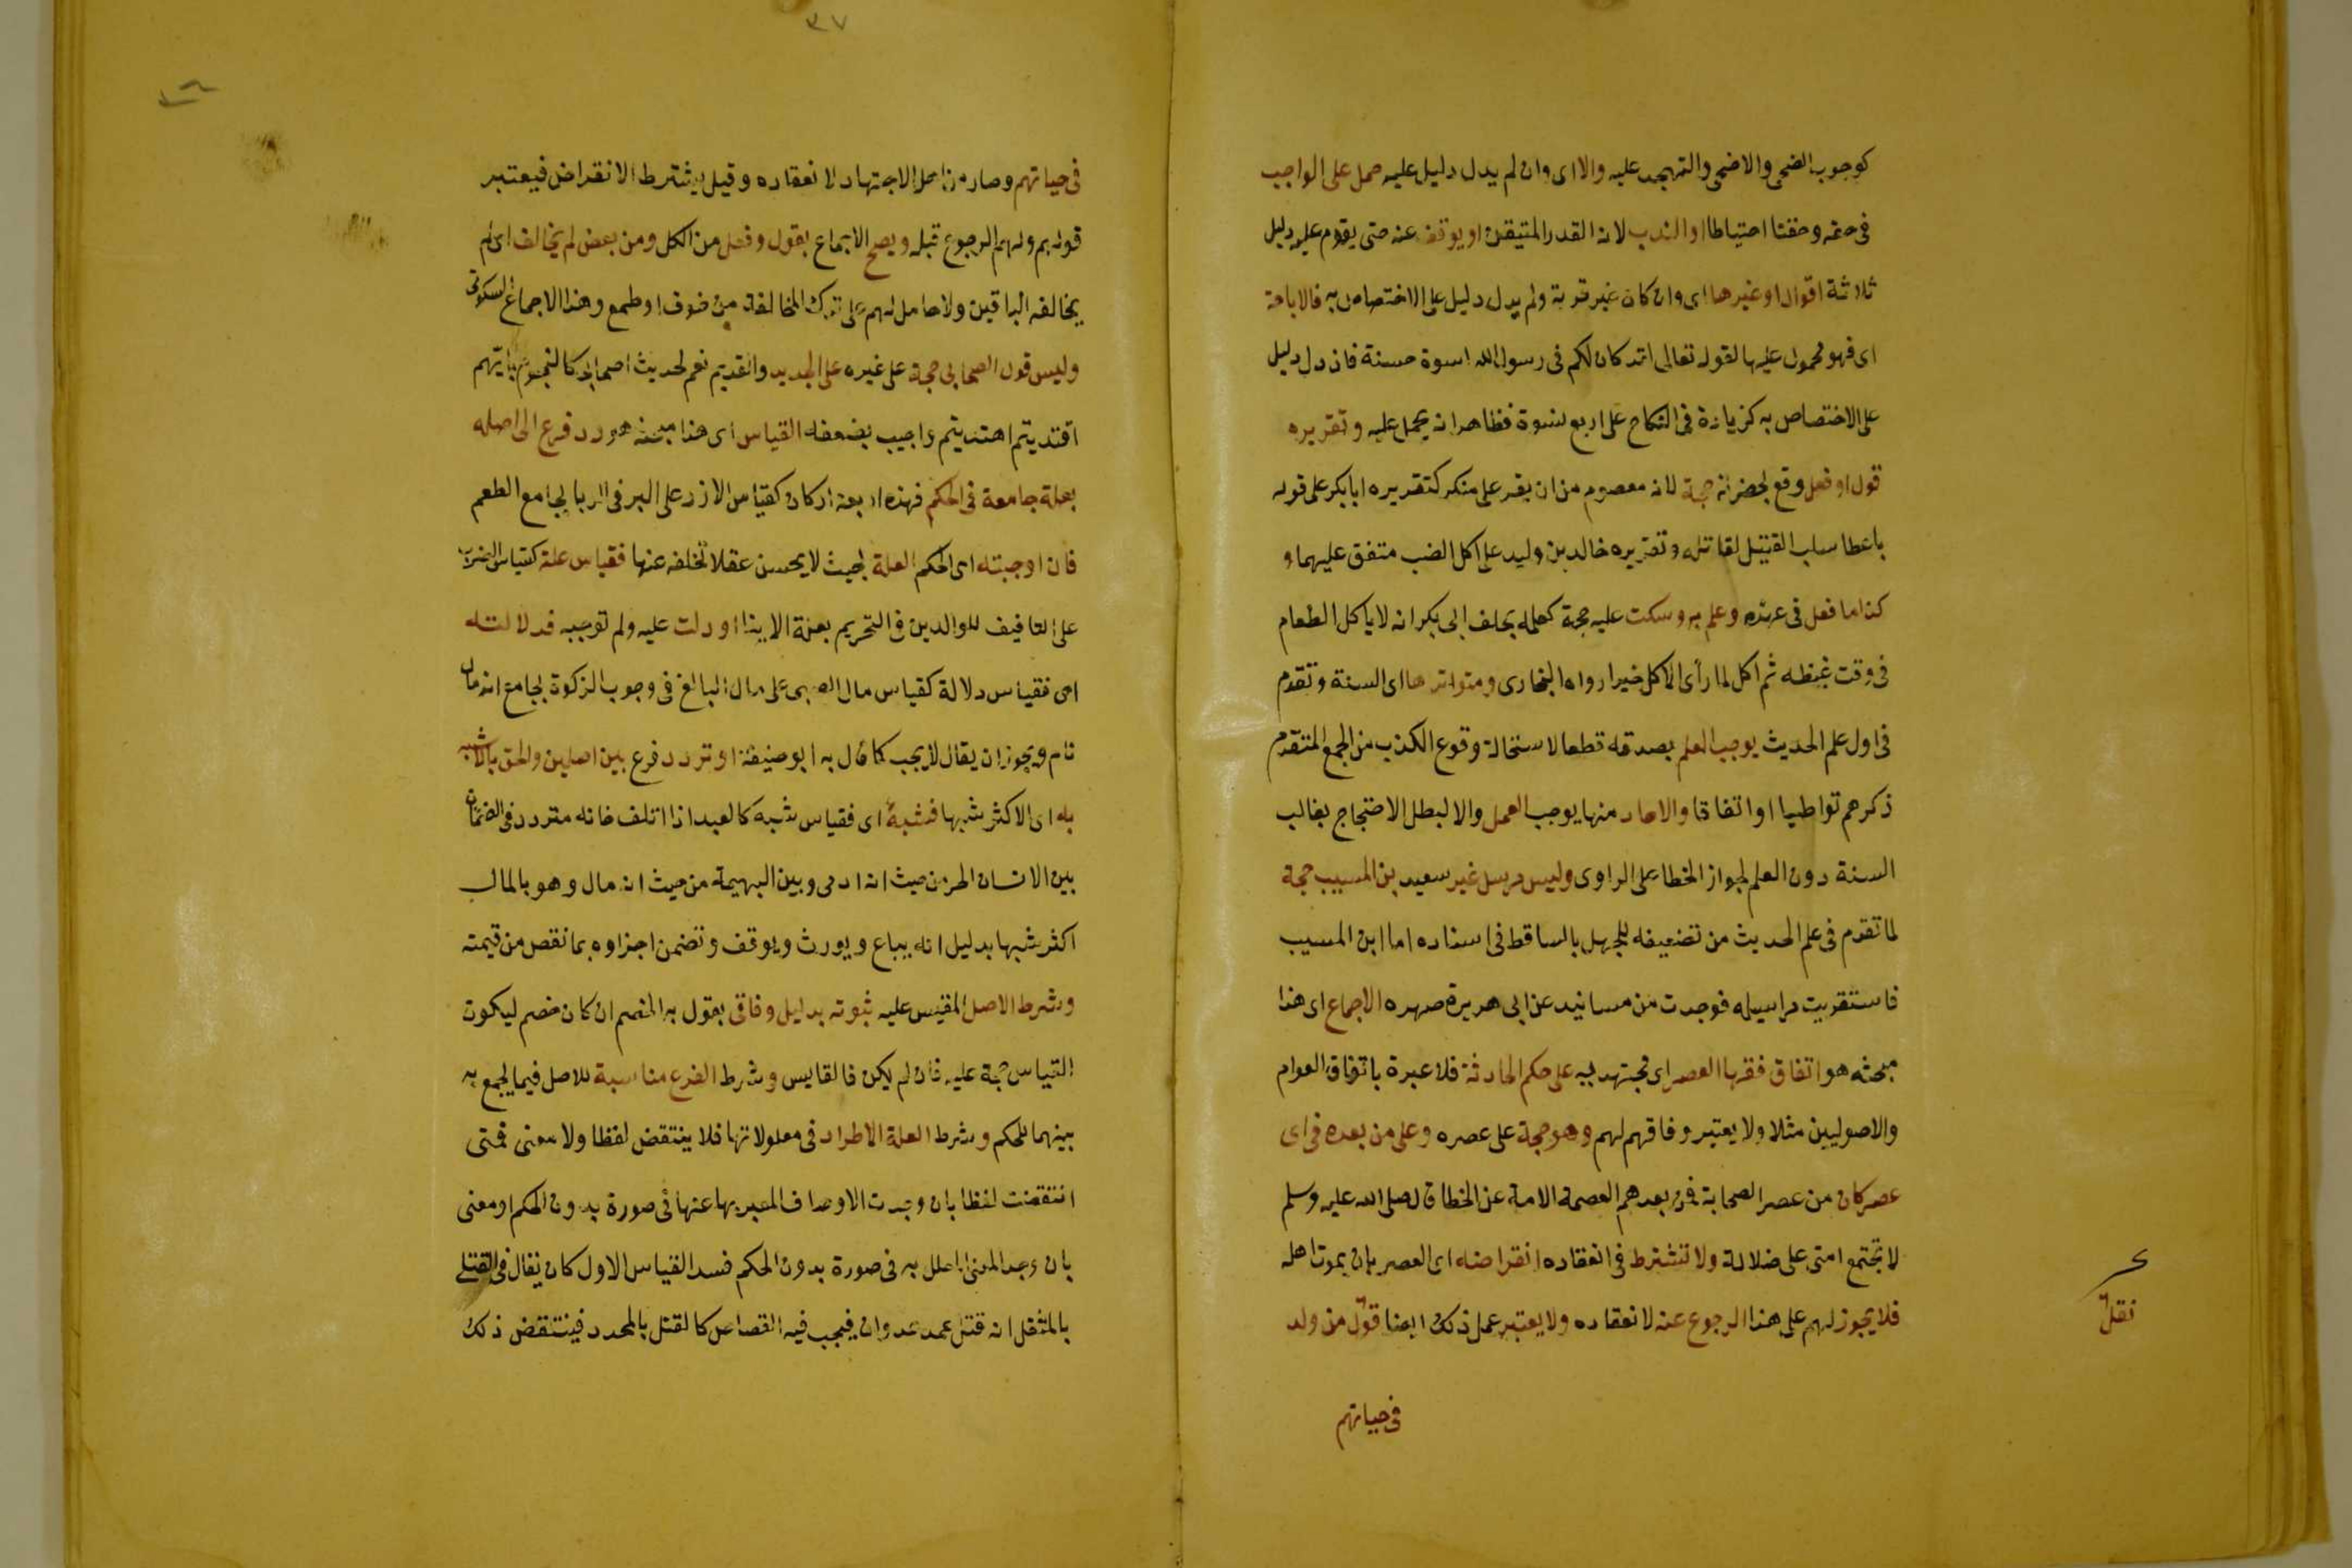 كوجوب الضحى والاضحى والتهجد عليه والا اى وان لم يدل دليل عليه حمل على الواجب
فى حقه وحقنا احتياطا او الندب لانه القدر المتيقن او يوقف عنه حتى يقوم عليه دليل
ثلاثة اقوال او غيرها اى وان كان غير قربة ولم يدل دليل على الاختصاص به فالاباحة
اى فهو محمول عليها لقوله تعالى لقد كان لكم فى رسول الله اسوة حسنة فان دل دليل
على الاختصاص به كزيادة فى النكاح على اربع نسوة فظاهر انه يحمل عليه وتقريره
قول او فعل وقع بحضرته حجة لانه معصوم من ان يقر على منكر كتقريره ابا بكر على قوله
باعطا سلب القتيل لقاتله وتقريره خالد بن وليد على اكل الضب متفق عليهما و
كذا ما فعل فى عهده وعلم به وسكت عليه حجة كعلمه بحلف ابى بكر انه لا ياكل الطعام
فى وقت غيظه ثم اكل لما رأى الاكل خيرا رواه البخارى ومتواترها اى السنة وتقدم
فى اول علم الحديث يوجب العلم بصدقه قطعا لاستحالة وقوع الكذب من الجمع المتقدم
ذكرهم تواطيا او اتفاقا والاحاد منها يوجب العمل والا لبطل الاحتجاج بغالب
السنة دون العلم لجواز الخطا على الراوى وليس مرسل غير سعيد بن المسيب حجة
لما تقدم فى علم الحديث من تضعيفه للجهل بالساقط فى اسناده اما ابن المسيب
فاستقريت مراسيله فوجدت من مسانيد عن ابى هريرة صهره الاجماع اى هذا
مبحثه هو اتفاق فقها العصر اى مجتهديه على حكم الحادثة فلا عبرة باتفاق العوام
والاصوليين مثلا ولا يعتبر وفاقهم لهم وهو حجة على عصره وعلى من بعده فى اى
عصر كان من عصر الصحابة فمن بعدهم لعصمة الامة عن الخطا قال صلى الله عليه وسلم
لا تجتمع امتى على ضلالة ولا تشترط فى انعقاده انقراضه اى العصر بان يموت اهله
فلا يجوز لهم على هذا الرجوع عنه لانعقاده ولا يعتبر عمل ذلك ايضا قول من ولد
نقل
فى حياتهم
٣٧
فى حياتهم وصار من اهل الاجتهاد لانعقاده وقيل يشترط الانقراض فيعتبر
قولهم ولهم الرجوع قبله ويصح الاجماع بقول وفعل من الكل ومن بعض لم يخالف اى لم
يخالفه الباقين ولا حامل لهم على ترك المخالفة من خوف او طمع وهذا الاجماع السكوتى
وليس قول الصحابى حجة على غيره على الجديد والقديم نعم لحديث اصحابى كالنجوم بايهم
اقتديتم اهتديتم واجيب بضعفه القياس اى هذا مبحثه هو رد فرع الى اصله
بعلة جامعة فى الحكم فهذه اربعة اركان كقياس الارز على البر فى الربا بجامع الطعم
فان اوجبته اى الحكم العلة بحيث لا يحسن عقلا تخلفه عنها فقياس علة كقياس الضرب
على التافيف للوالدين فى التحريم بعلة الايذا او دلت عليه ولم توجبه فدلالته
اى فقياس دلالة كقياس مال الصبى على مال البالغ فى وجوب الزكوة بجامع انه مال
نام ويجوز ان يقال لا يجب كما قال به ابو حنيفة او تردد فرع بين اصلين والحق بالاشبه
به اى الاكثر شبها فشبه اى فقياس شبه كالعبد اذا اتلف فانه متردد فى الضمان
بين الانسان الحر من حيث انه ادمى وبين البهيمة من حيث انه مال وهو بالمال
اكثر شبها بدليل انه يباع ويورث ويوقف وتضمن اجزاوه بما نقص من قيمته
وشرط الاصل المقيس عليه ثبوته بدليل وفاقى يقول به الخصم ان كان خصم ليكون
القياس حجة عليه فان لم يكن فالقايس وشرط الفرع مناسبة للاصل فيما يجمع به
بينهما للحكم وشرط العلة الاطراد فى معلولاتها فلا ينتقض لفظا ولا معنى فمتى
انتقضت لفظا بان وجدت الاوصاف المعبر بها عنها فى صورة بدون الحكم او معنى
بان وجد المعنى المعلل به فى صورة بدون الحكم فسد القياس الاول كان يقال فى القتل
بالمثقل انه قتل عمد عدوان فيجب فيه القصاص كالقتل بالمحدد فينتقض ذلك